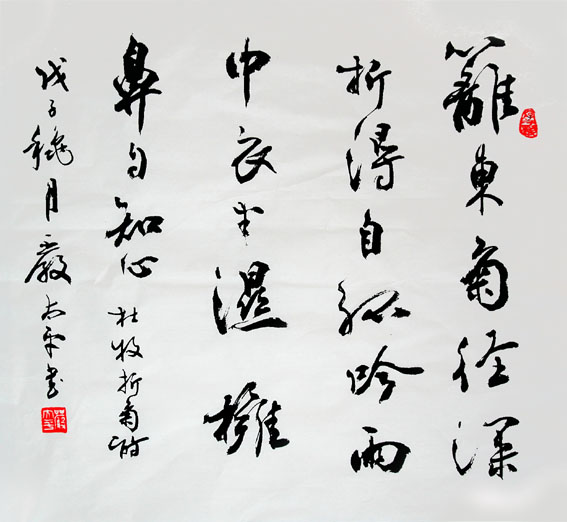 籬東菊径深
折得自孤吟雨
中衣半濕擁
鼻自知心 杜牧折菊詩
戊子穐月嚴平書